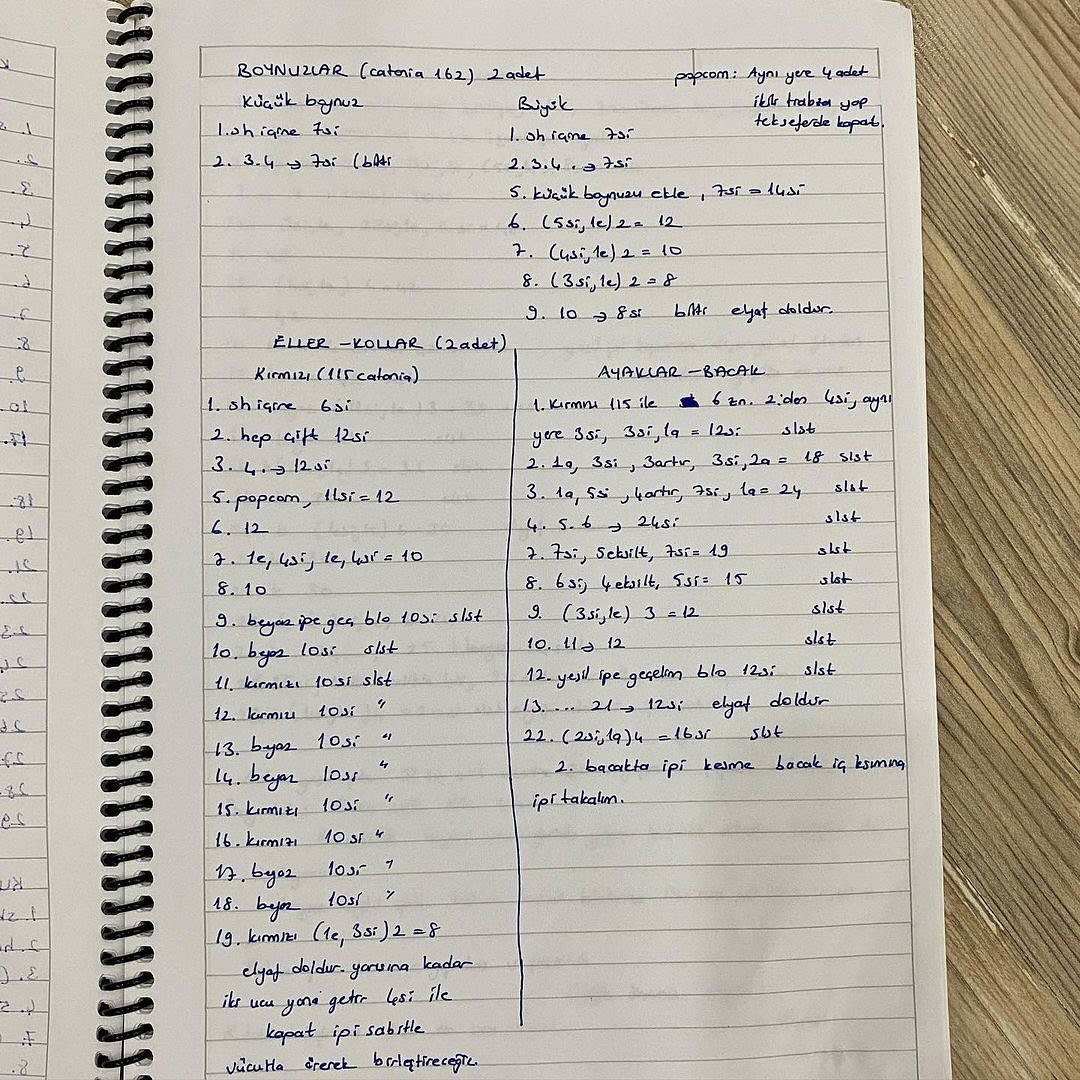 BOYNUZLAR (catonia 162) 2 adet
popcorn: Aynı yere 4 adet
ikili trabzan yap
tek seferde kapat.
Küçük boynuz
1. sh içine 7si
2. 3.4 → 7si (bitti
Büyük
1. sh içine 7si
2. 3.4. → 7si
5. küçük boynuzu ekle, 7si = 14si
6. (5si,1e) 2 = 12
7. (4si,1e) 2 = 10
8. (3si,1e) 2 = 8
9. 10 → 8si bitti elyaf doldur.
ELLER - KOLLAR (2 adet)
Kırmızı (115 catonia)
1. sh içine 6si
2. hep çift 12si
3. 4. → 12si
5. popcorn, 11si = 12
6. 12
7. 1e, 4si, 1e, 4si = 10
8. 10
9. beyaz ipe geç blo 10si slst
10. beyaz 10si slst
11. kırmızı 10si slst
12. kırmızı 10si "
13. beyaz 10si "
14. beyaz 10si "
15. kırmızı 10si "
16. kırmızı 10si "
17. beyaz 10si "
18. beyaz 10si "
19. kırmızı (1e, 3si) 2 = 8
elyaf doldur. yarısına kadar
iki ucu yana getir 4si ile
kapat ipi sabitle
vücutla örerek birleştireceğiz.
AYAKLAR - BACAK
1. Kırmızı 115 ile 6 zn. 2.den 4si, aynı
yere 3si, 3si, 1a = 12si slst
2. 1a, 3si, 3artır, 3si, 2a = 18 slst
3. 1a, 5si, 4artır, 7si, 1a = 24 slst
4. 5. 6 → 24si slst
7. 7si, 5eksilt, 7si = 19 slst
8. 6si, 4eksilt, 5si = 15 slst
9. (3si,1e) 3 = 12 slst
10. 11 → 12 slst
12. yeşil ipe geçelim blo 12si slst
13. ... 21 → 12si elyaf doldur
22. (2si,1a) 4 = 16si slst
2. bacakta ipi kesme bacak iç kısmına
ipi takalım.